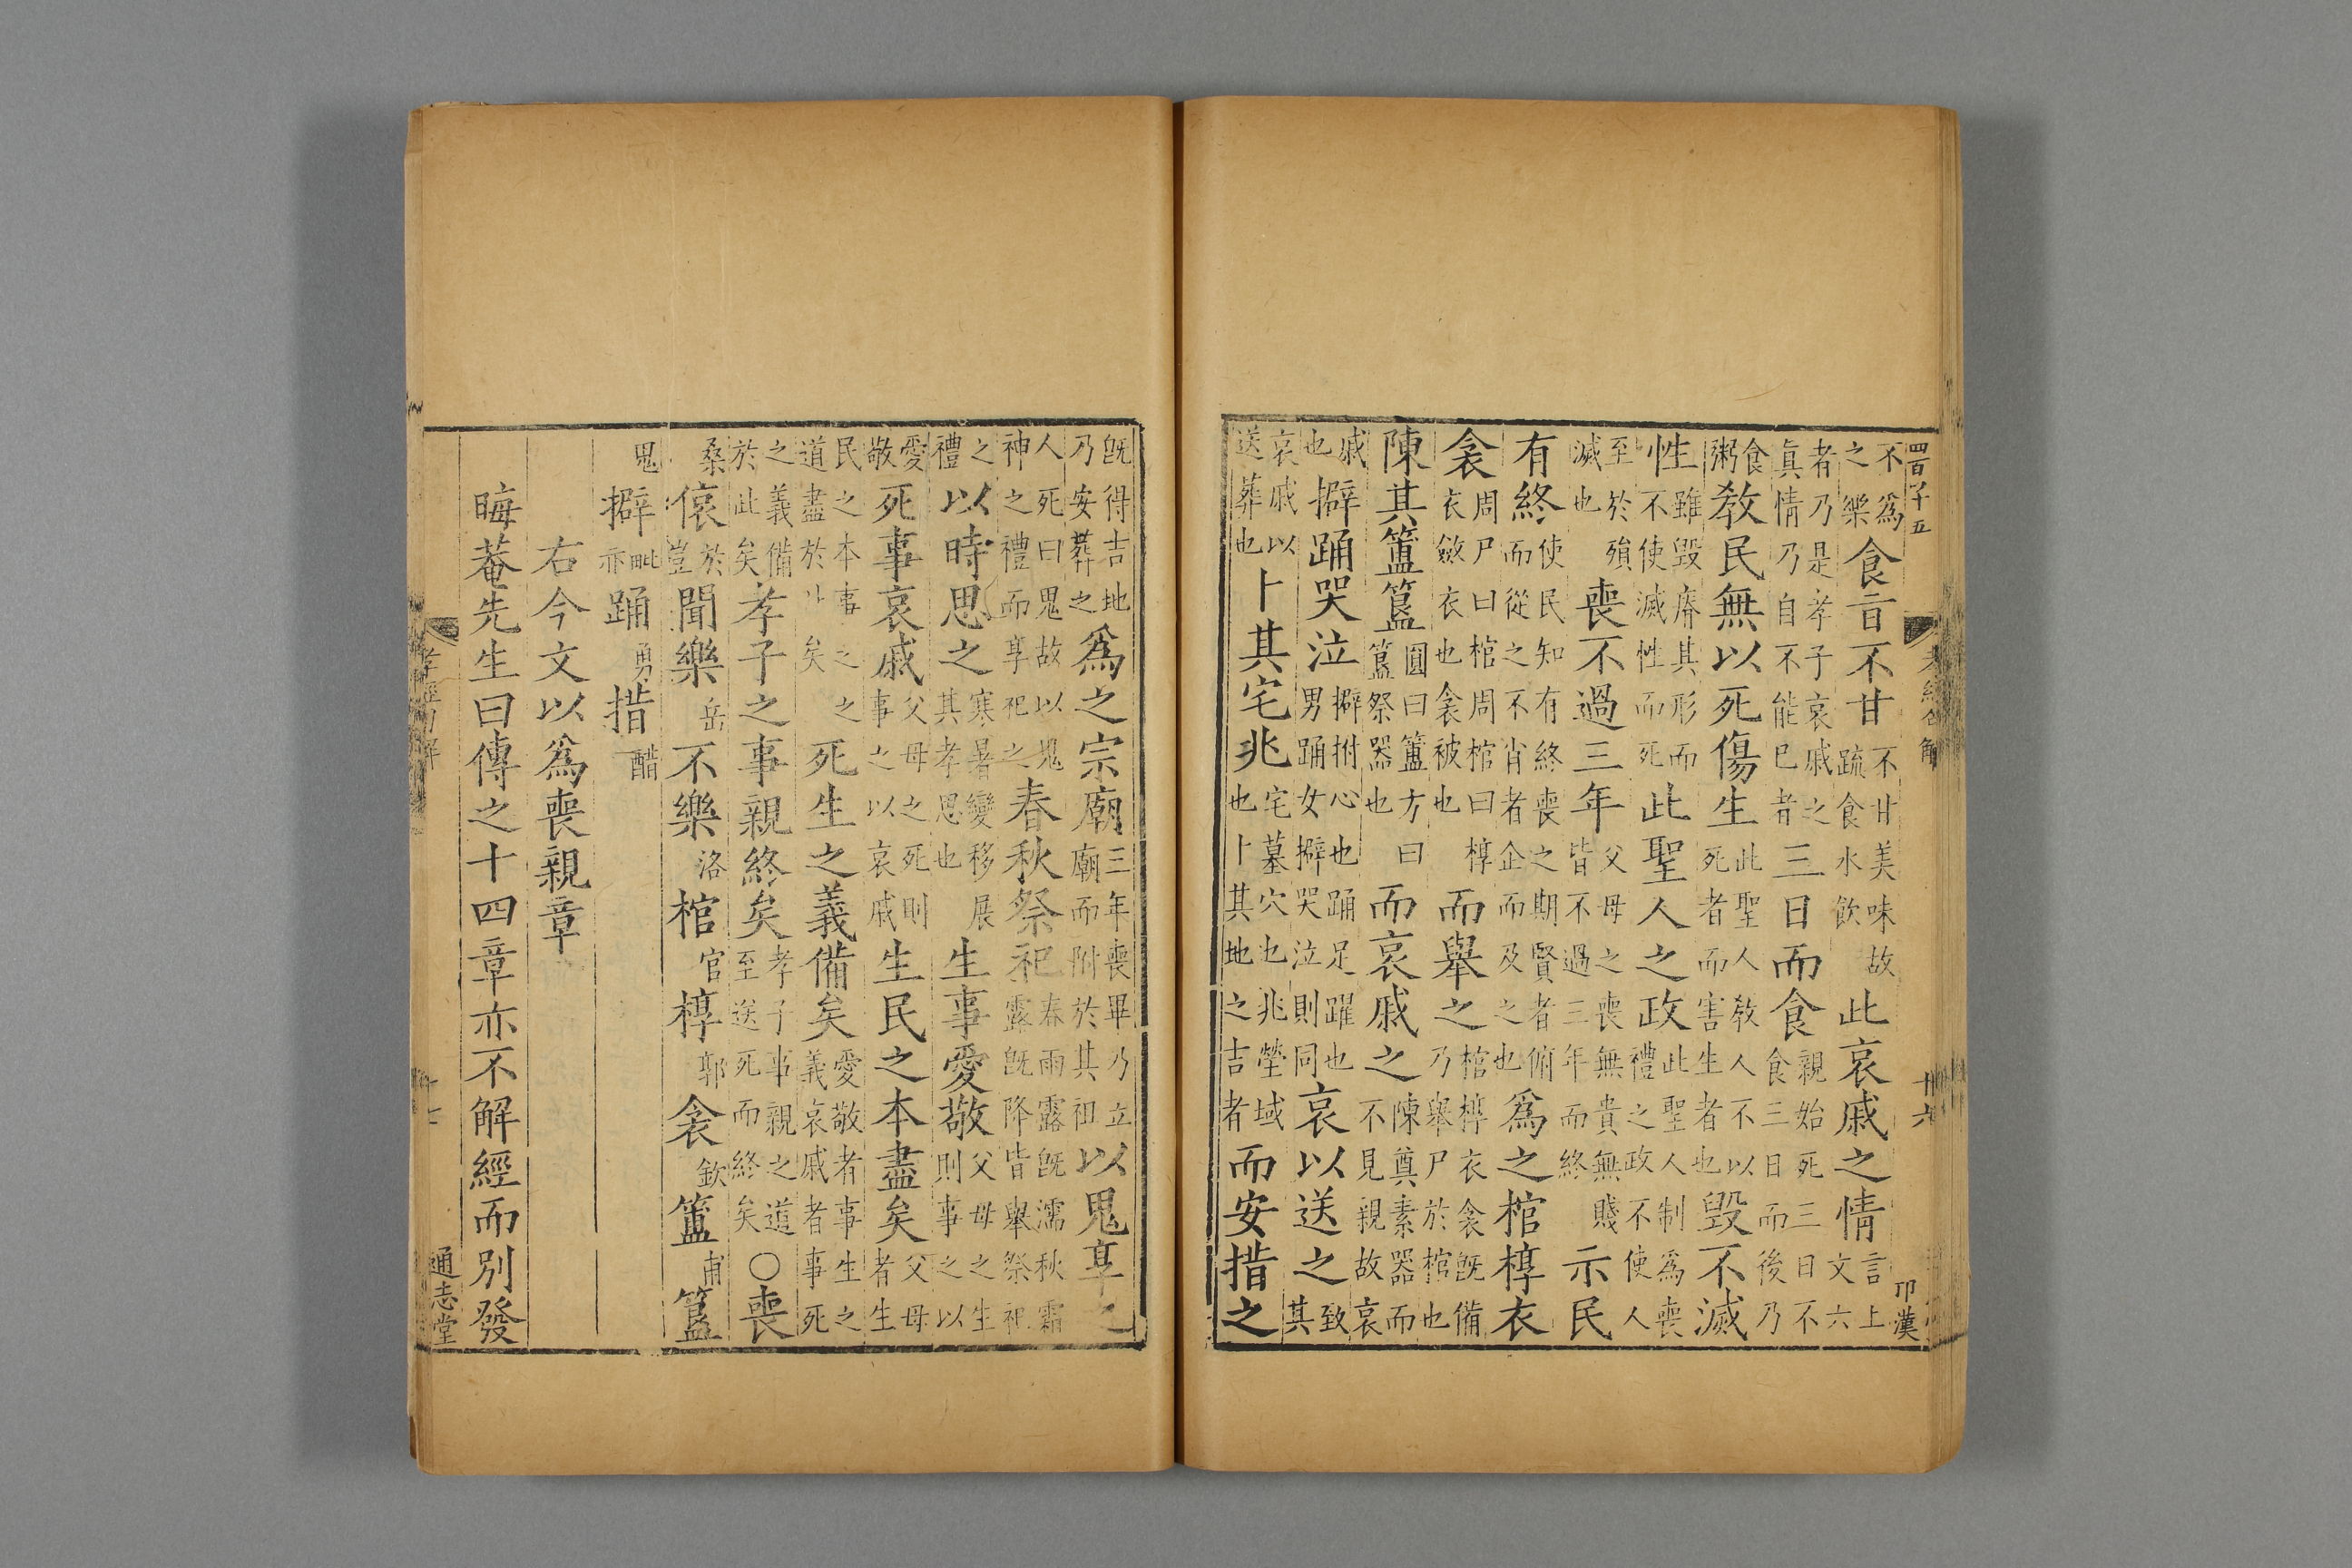 四百子五 十六 卬漢
不爲之樂食旨不甘不甘美味故疏食水飲此哀戚之情言上文六
者乃是孝子哀戚之真情乃自不能已者三日而食親始死三日不食三日而後乃
食粥教民無以死傷生此聖人教人不以死者而害生者也毀不滅
性雖毀瘠其形而不使滅性而死此聖人之政此聖人制爲喪禮之政不使人
至於殞滅也喪不過三年父母之喪無貴無賤皆不過三年而終示民
有終使民知有終喪之期賢者俯而從之不肖者企而及之也爲之棺椁衣
衾周尸曰棺周棺曰椁衣斂衣也衾被也而舉之棺椁衣衾既備乃舉尸於棺也
陳其簠簋圓曰簠方曰簋祭器也而哀戚之陳奠素器而不見親故哀
戚也擗踊哭泣擗拊心也踊足躍也男踊女擗哭泣則同哀以送之致其
哀戚以送葬也卜其宅兆宅墓穴也兆塋域也卜其地之吉者而安措之
既得吉地乃安葬之爲之宗廟三年喪畢乃立廟而附於其祖以鬼享之
人死曰鬼故以鬼神之禮而享祀之春秋祭祀春雨露既濡秋霜露既降皆舉祭祀
之禮以時思之寒暑變移展其孝思也生事愛敬父母之生則事之以
愛敬死事哀戚父母之死則事之以哀戚生民之本盡矣父母者生
民之本事之之道盡於矣死生之義備矣愛敬者事生之義哀戚者事死
之義備於此矣孝子之事親終矣孝子事親之道至送死而終矣○喪
桑偯於豈聞樂岳不樂洛棺官椁郭衾欽簠甫簋
鬼擗毗亦踊勇措醋
右今文以爲喪親章
晦菴先生曰傳之十四章亦不解經而別發
孝經句解 十七 通志堂